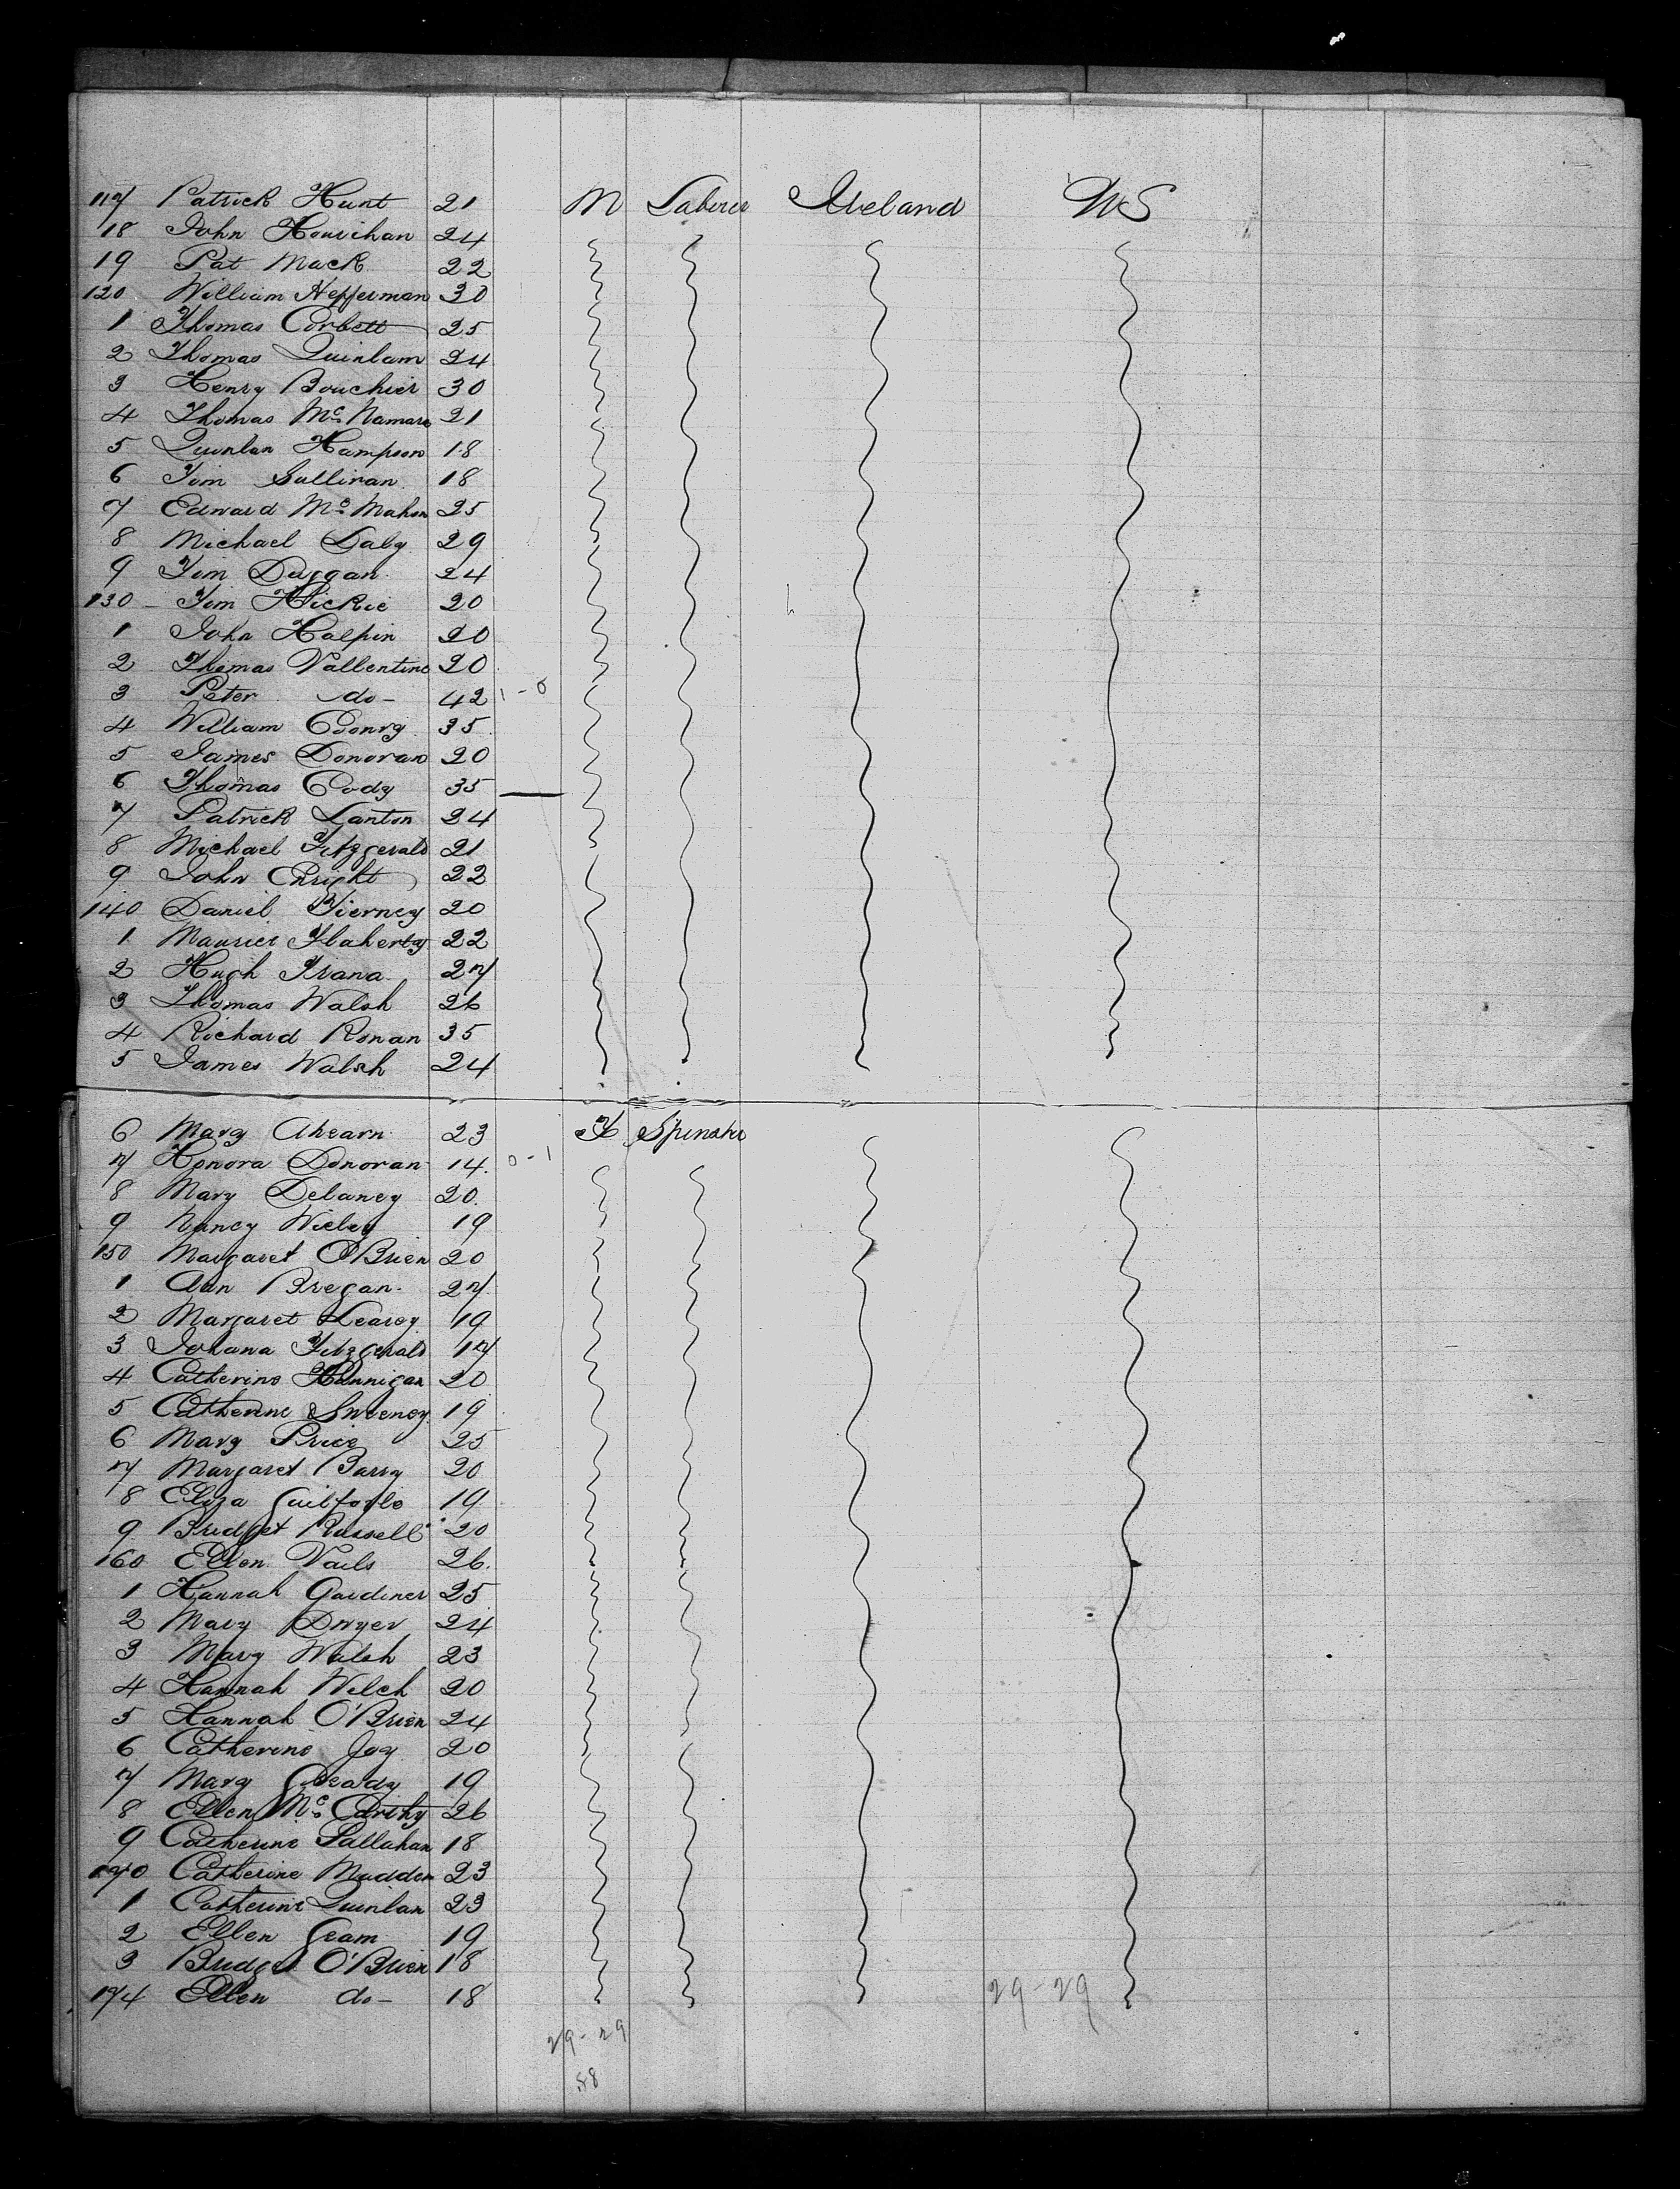 117 Patrick Hunt 21 M Laborer Ireland US
18 John Hourihan 24
19 Pat Mack 22
120 William Hefferman 30
1 Thomas Corbett 25
2 Thomas Quinlam 24
3 Henry Bouchier 30
4 Thomas McNamara 21
5 Quinlan Hampson 18
6 Tim Sullivan 18
7 Edward McMahon 25
8 Michael Daly 29
9 Tim Duggan 24
130 - Tim Hickie 20
1 John Halpin 20
2 Thomas Vallentine 20
3 Peter do- 42 1-0
4 William 35
5 James Donovan 20
6 Thomas Cody 35
7 Patrick Lanton 24
8 Michael Fitzgerald 21
9 John Enright 22
140 Daniel Tierney 20
1 Maurice Flaherty 22
2 Hugh 27
3 Thomas Walsh 26
4 Richard Ronan 35
5 James Walsh 24
6 Mary Ahearn 23 F Spinster
7 Honora Donovan 14 0-1
8 Mary Delaney 20
9 Nancy Wieley 19
150 Margaret O'Brien 20
1 Ann Bregan 27
2 Margaret Learey 19
3 Johana Fitzgerald 17
4 Catherine Hannigan 20
5 Catherine Sweeney 19
6 Mary Price 25
7 Margaret Barry 20
8 Eliza Guilfoyle 19
9 Bridget Russell 20
160 Ellen Vails 26
1 Hannah Gardiner 25
2 Mary Dwyer 24
3 Mary Walsh 23
4 Hannah Welch 20
5 Hannah O'Brien 24
6 Catherine Joy 20
7 Mary Gready 19
8 Ellen McCarthy 26
9 Catherine Callahan 18
170 Catherine Madden 23
1 Catherine Quinlan 23
2 Ellen Geam 19
3 Bridget O'Brien 18
174 Ellen do- 18 29-29
29-29
58